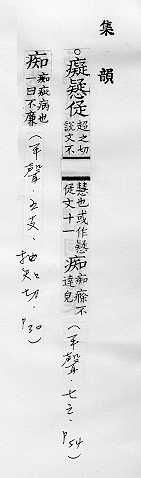 集韻
。癡㝵𠈃超之切說文不慧也或作㝵𠈃文十一 痴痴㾕不達皃(平聲·七之·P54)
痴痴㾕病也一曰不廉(平聲·五支·抽知切·P30)